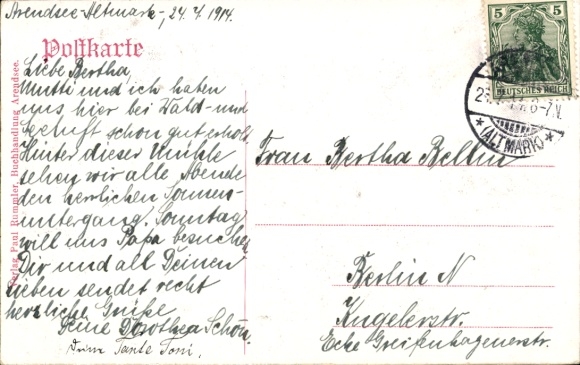 Arendsee-Altmark, 24.7.1914.
Postkarte
Verlag Paul Rummler, Buchhandlung Arendsee.
Liebe Bertha,
Mutti und ich haben
uns hier bei Wald- und
Seeluft schon gut erholt.
Hinter dieser Mühle
sehen wir alle Abende
den herrlichen Sonnen-
untergang. Sonntag
will uns Papa besuchen
Dir und all Deinen
Lieben sendet recht
herzliche Grüße
Deine Dorothea Schön.
Deine Tante Toni.
5 5
DEUTSCHES REICH
6-7N.
*(ALTMARK)*
Frau Bertha Bellin
Berlin N
Kugelerstr.
Ecke Greifenhagenerstr.